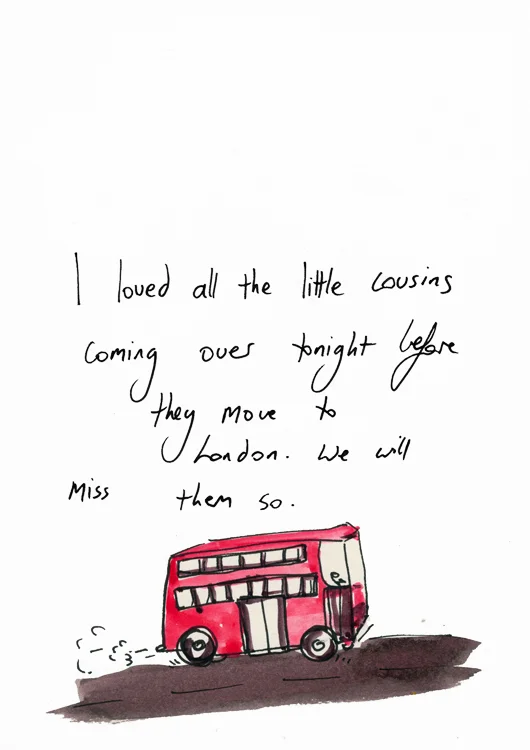 I loved all the little cousins
coming over tonight before
they move to
London. We will
Miss them so.